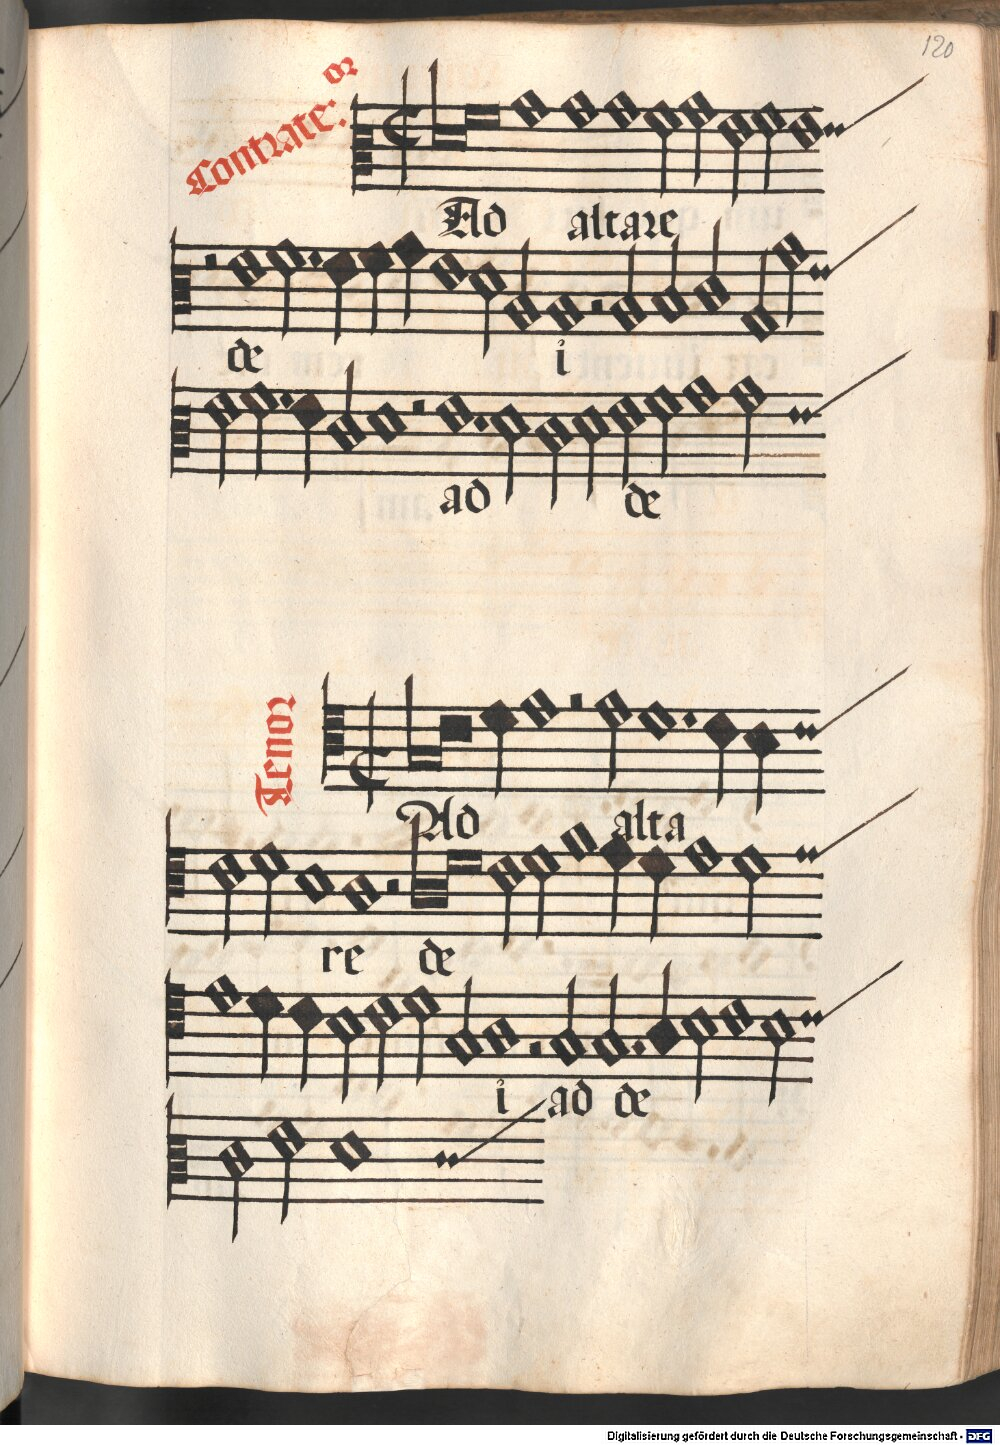 120
Contrate:or
Ad altare
de i
ad de
Tenor
Ad alta
re de
i ad de
Digitalisierung gefördert durch die Deutsche Forschungsgemeinschaft - DFG